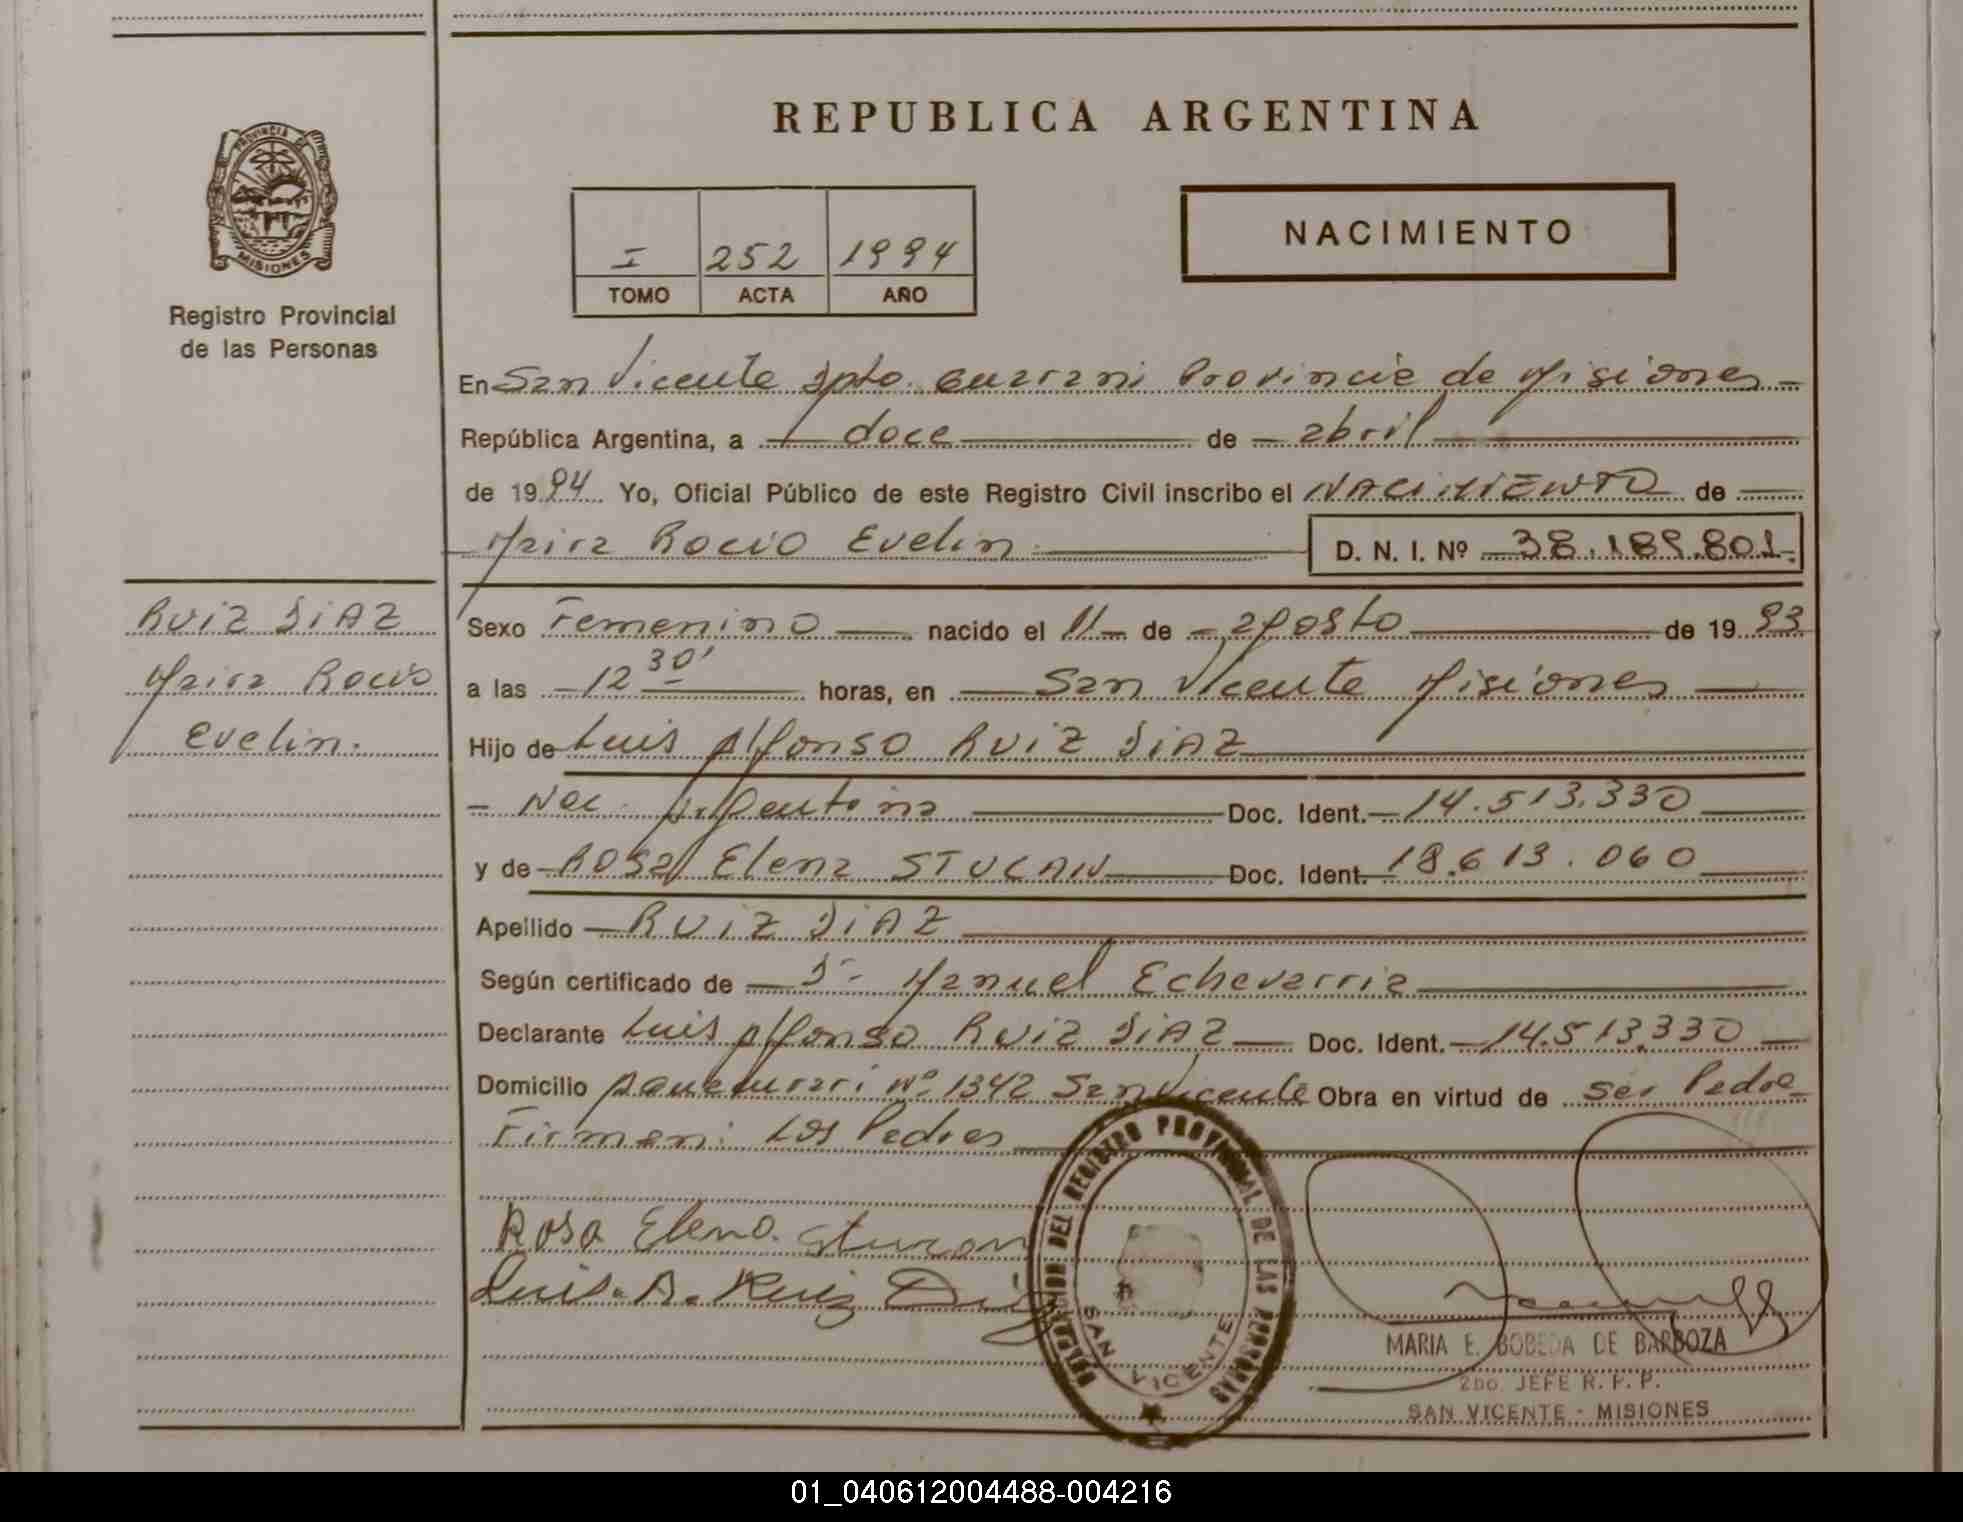 REPUBLICA ARGENTINA
PROVINCIA DE MISIONES
Registro Provincial
de las Personas
I 252 1994
TOMO ACTA AÑO
NACIMIENTO
En San Vicente Dpto. Guarani Provincia de Misiones
República Argentina, a doce de abril
de 1994 Yo, Oficial Público de este Registro Civil inscribo el NACIMIENTO de
Maira Rocio Evelin D. N. I. Nº 38.189.801.
RUIZ DIAZ
Maira Rocio
Evelin.
Sexo Femenino nacido el 11 de agosto de 1993
a las 12 30' horas, en San Vicente Misiones
Hijo de Luis Alfonso RUIZ DIAZ
Nac. Argentina Doc. Ident. 14.513.330
y de ROSA Elena STUCAN Doc. Ident. 18.613.060
Apellido RUIZ DIAZ
Según certificado de Dr. Manuel Echevarria
Declarante Luis Alfonso RUIZ DIAZ Doc. Ident. 14.513.330
Domicilio Nº 1342 San Vicente Obra en virtud de ser Padre
Firman: Los Padres
Rosa Elena
Luis A. Ruiz Diaz
DELEGACION DEL REGISTRO PROVINCIAL DE LAS PERSONAS
SAN VICENTE
MARIA E. BOBEDA DE BARBOZA
2do. JEFE R. P. P.
SAN VICENTE - MISIONES
01_040612004488-004216